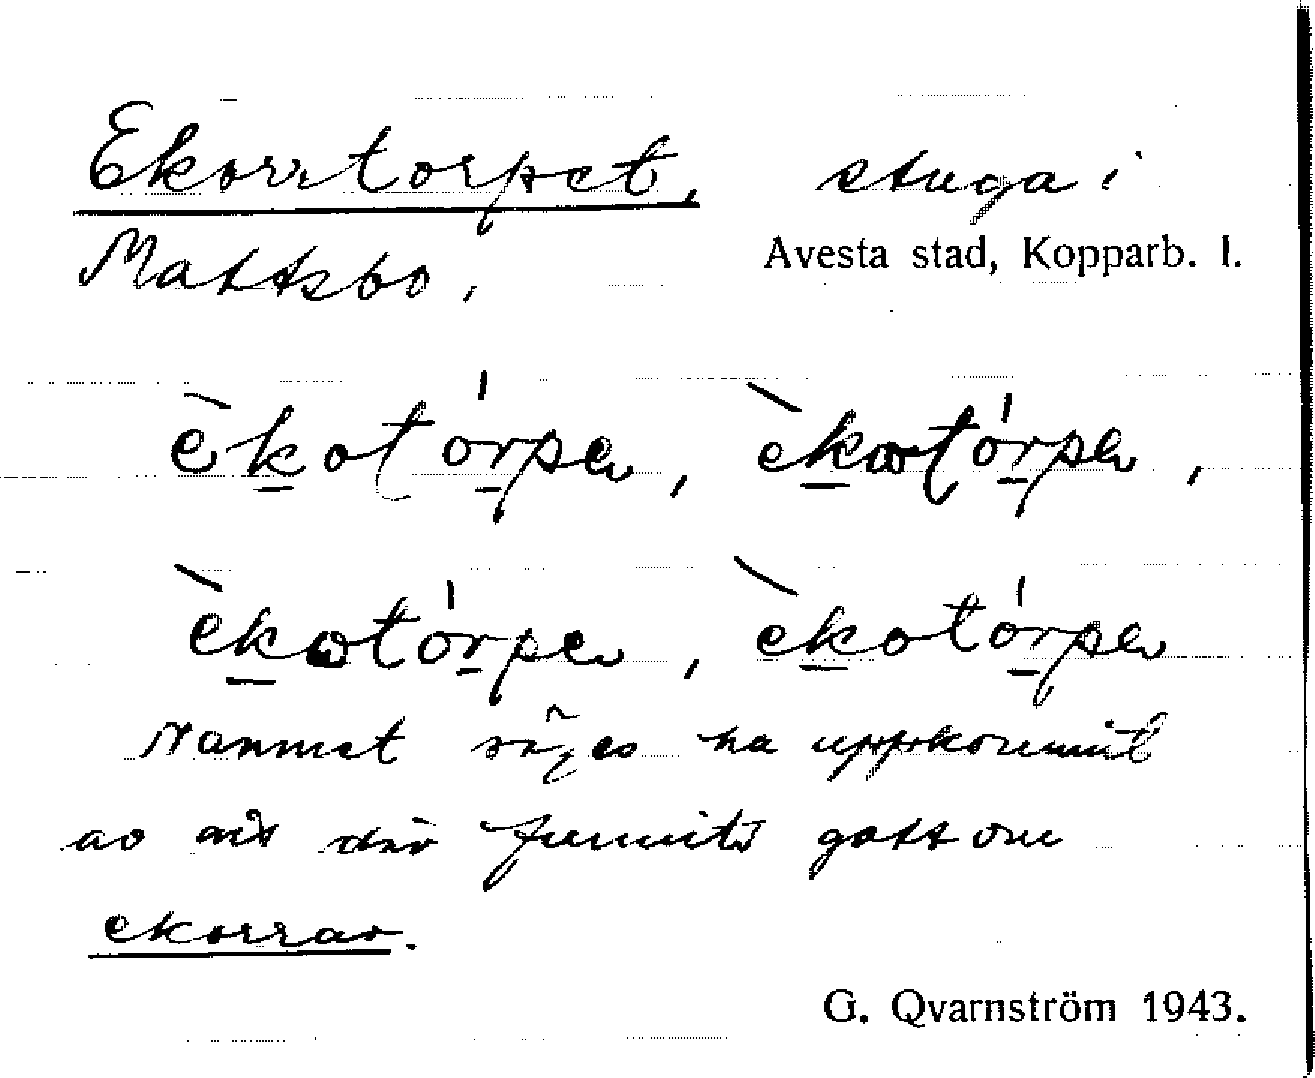 Ekorrtorpet, stuga i
Mattsbo, Avesta stad, Kopparb. l.
èkotórper, èkotórper,
èkotórper, èkotórper
Namnet säges ha uppkommit
av att där funnits gott om
ekorrar.
G. Qvarnström 1943.